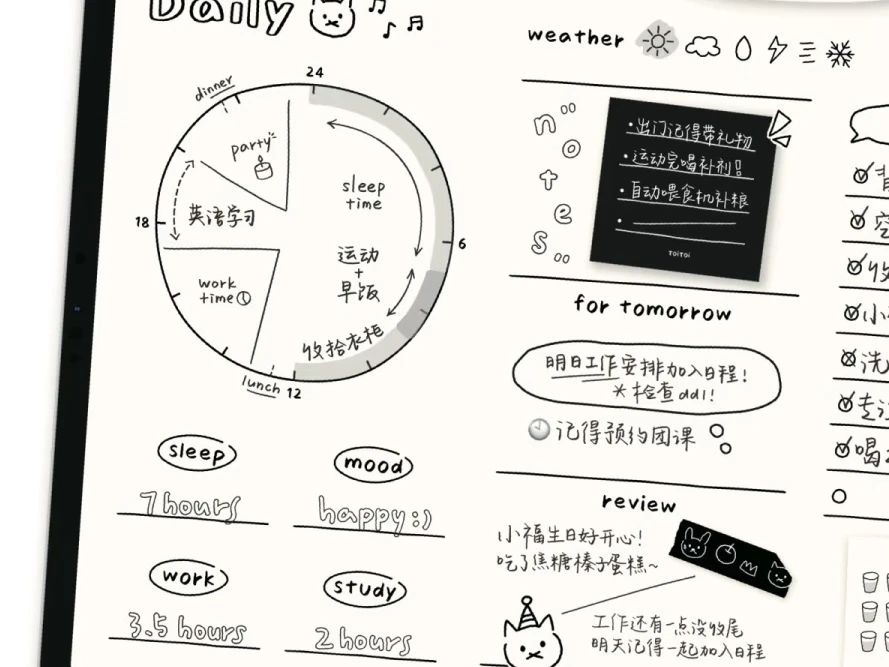 Daily
24
dinner
party
sleep
time
18
英语学习
6
运动
+
早饭
work
time
收拾衣柜
lunch
12
sleep
7 hours
mood
happy :)
work
3.5 hours
study
2 hours
weather
notes
·出门记得带礼物
·运动完喝补剂!
·自动喂食机补粮
TOiTOi
for tomorrow
明日工作安排加入日程!
*检查ddl!
记得预约团课
review
小福生日好开心!
吃了焦糖榛子蛋糕~
工作还有一点没收尾
明天记得一起加入日程
收
小
洗
专
喝